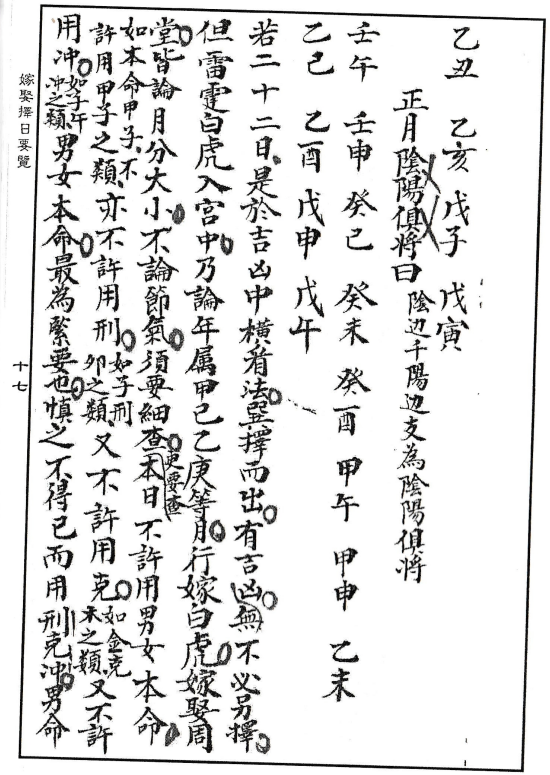 乙丑 乙亥 戊子 戊寅
正月陰陽俱将曰 陰边干陽边支為陰陽俱将
壬午 壬申 癸巳 癸未 癸酉 甲午 甲申 乙未
乙巳 乙酉 戊申 戊午
若二十二日是於吉凶中橫看法巽擇而出有吉凶無不必另擇
但雷霆白虎入宮中乃論年属甲己乙庚等月行嫁白虎嫁娶周
堂皆論月分大小不論節氣須要細查更要查本日不許用男女本命
如本命甲子不許用甲子之類亦不許用刑如子刑卯之類又不許用克如金克木之類又不許
用冲如子午冲之類男女本命最為緊要也慎之不得已而用刑克冲男命
嫁娶擇日要覽
十七